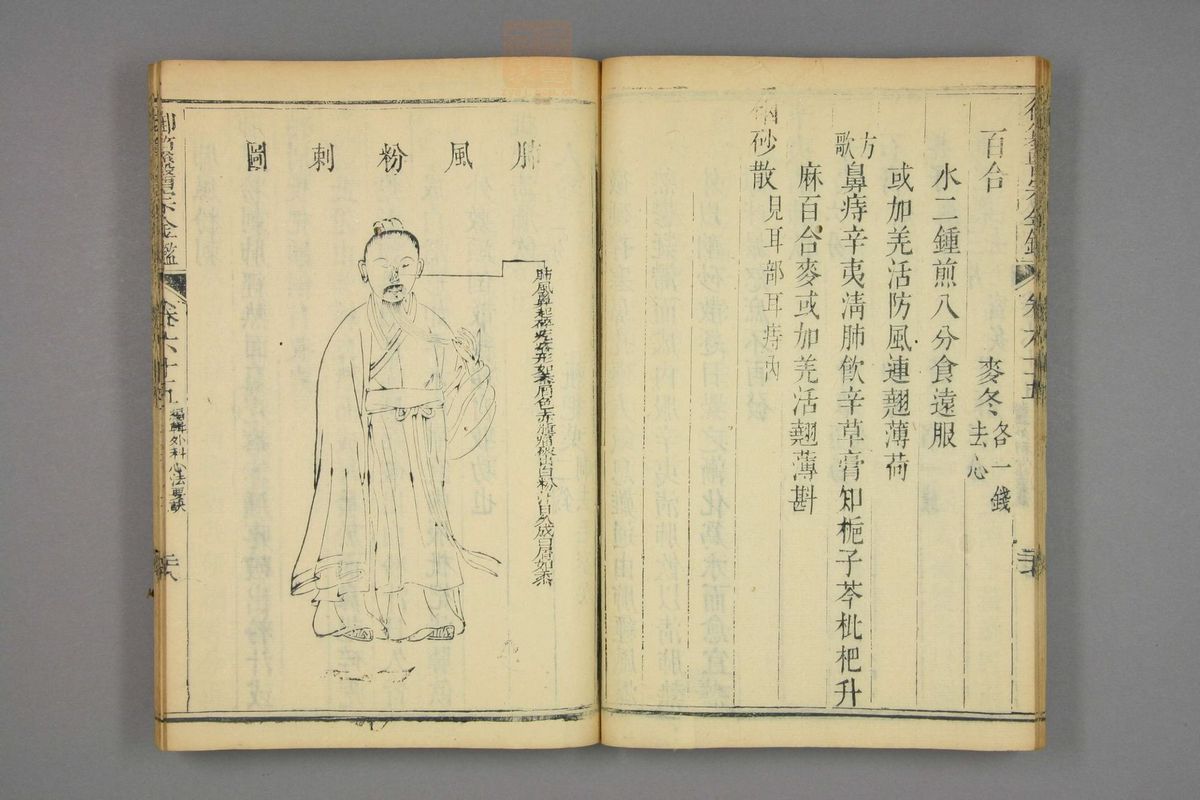 百合　麥冬各一錢去心
水二鍾煎八分食遠服
或加羌活防風連翹薄荷
方歌　鼻痔辛夷清肺飲辛草膏知梔子芩枇杷升
麻百合麥或加羌活翹薄斟
砂散見耳部耳痔內
肺風粉刺圖
肺風鼻起碎疙瘩形如黍屑色赤腫痛破出白粉汁日久成白屑如黍
御纂醫宗金鑑
卷六十五
編輯外科心法要訣
二十八